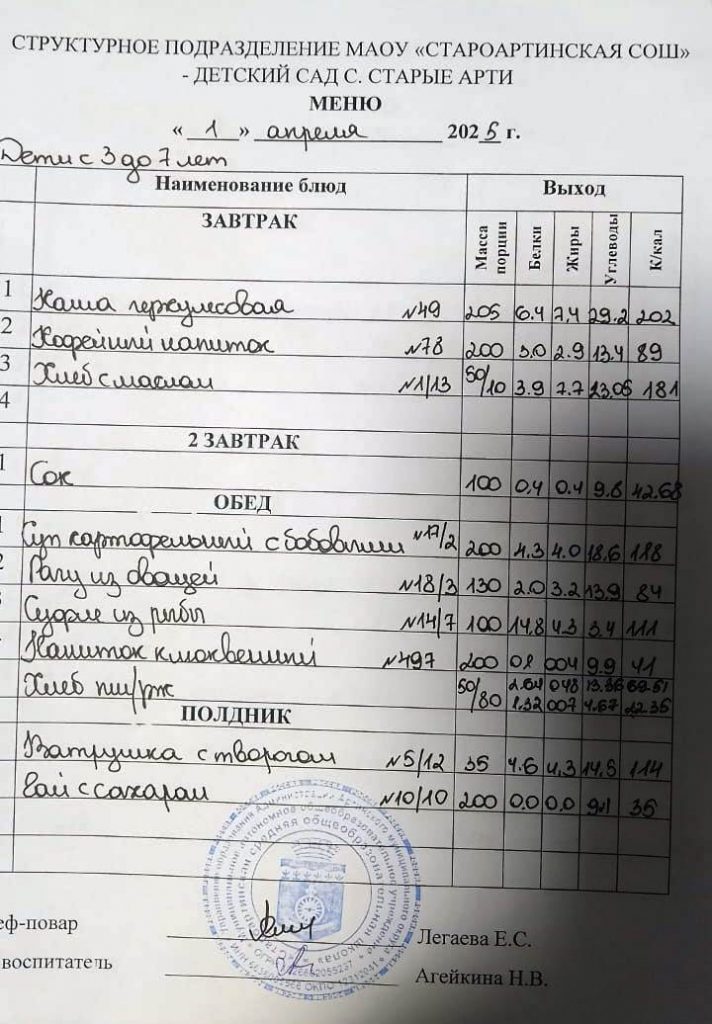 СТРУКТУРНОЕ ПОДРАЗДЕЛЕНИЕ МАОУ «СТАРОАРТИНСКАЯ СОШ»
- ДЕТСКИЙ САД С. СТАРЫЕ АРТИ
МЕНЮ
« 1 » апреля 2025 г.
Дети с 3 до 7 лет
Наименование блюд Выход
ЗАВТРАК Масса порции Белки Жиры Углеводы К/кал
1 Каша геркулесовая №49 205 6.4 7,4 29.2 202
2 Кофейный напиток №78 200 3,0 2.9 13,4 89
3 Хлеб с маслом №1/13 50/10 3.9 7.7 23,05 181
4
2 ЗАВТРАК
1 Сок 100 0,4 0.4 9.8 42.68
ОБЕД
Суп картофельный с бобовыми №17/2 200 4.3 4.0 18,6 188
2 Рагу из овощей №18/3 130 2.0 3.2 13,9 84
Суфле из рыбы №14/7 100 14,8 4.3 3,4 111
Напиток клюквенный №497 200 0,1 004 9.9 41
Хлеб пш/рж 50/80 2.64 048 13.36 69.51
1,32 007 4.67 22.35
ПОЛДНИК
Ватрушка с творогом №5/12 35 4.6 4,3 14,5 114
Чай с сахаром №10/10 200 0.0 0,0 9,1 35
еф-повар Легаева Е.С.
воспитатель Агейкина Н.В.